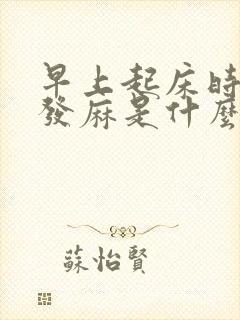 早上起床時
發麻是什麼
蘇怡賢